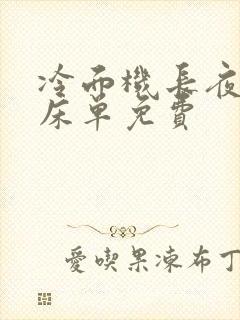 冷面機長夜
床單免費
愛喫果凍布丁